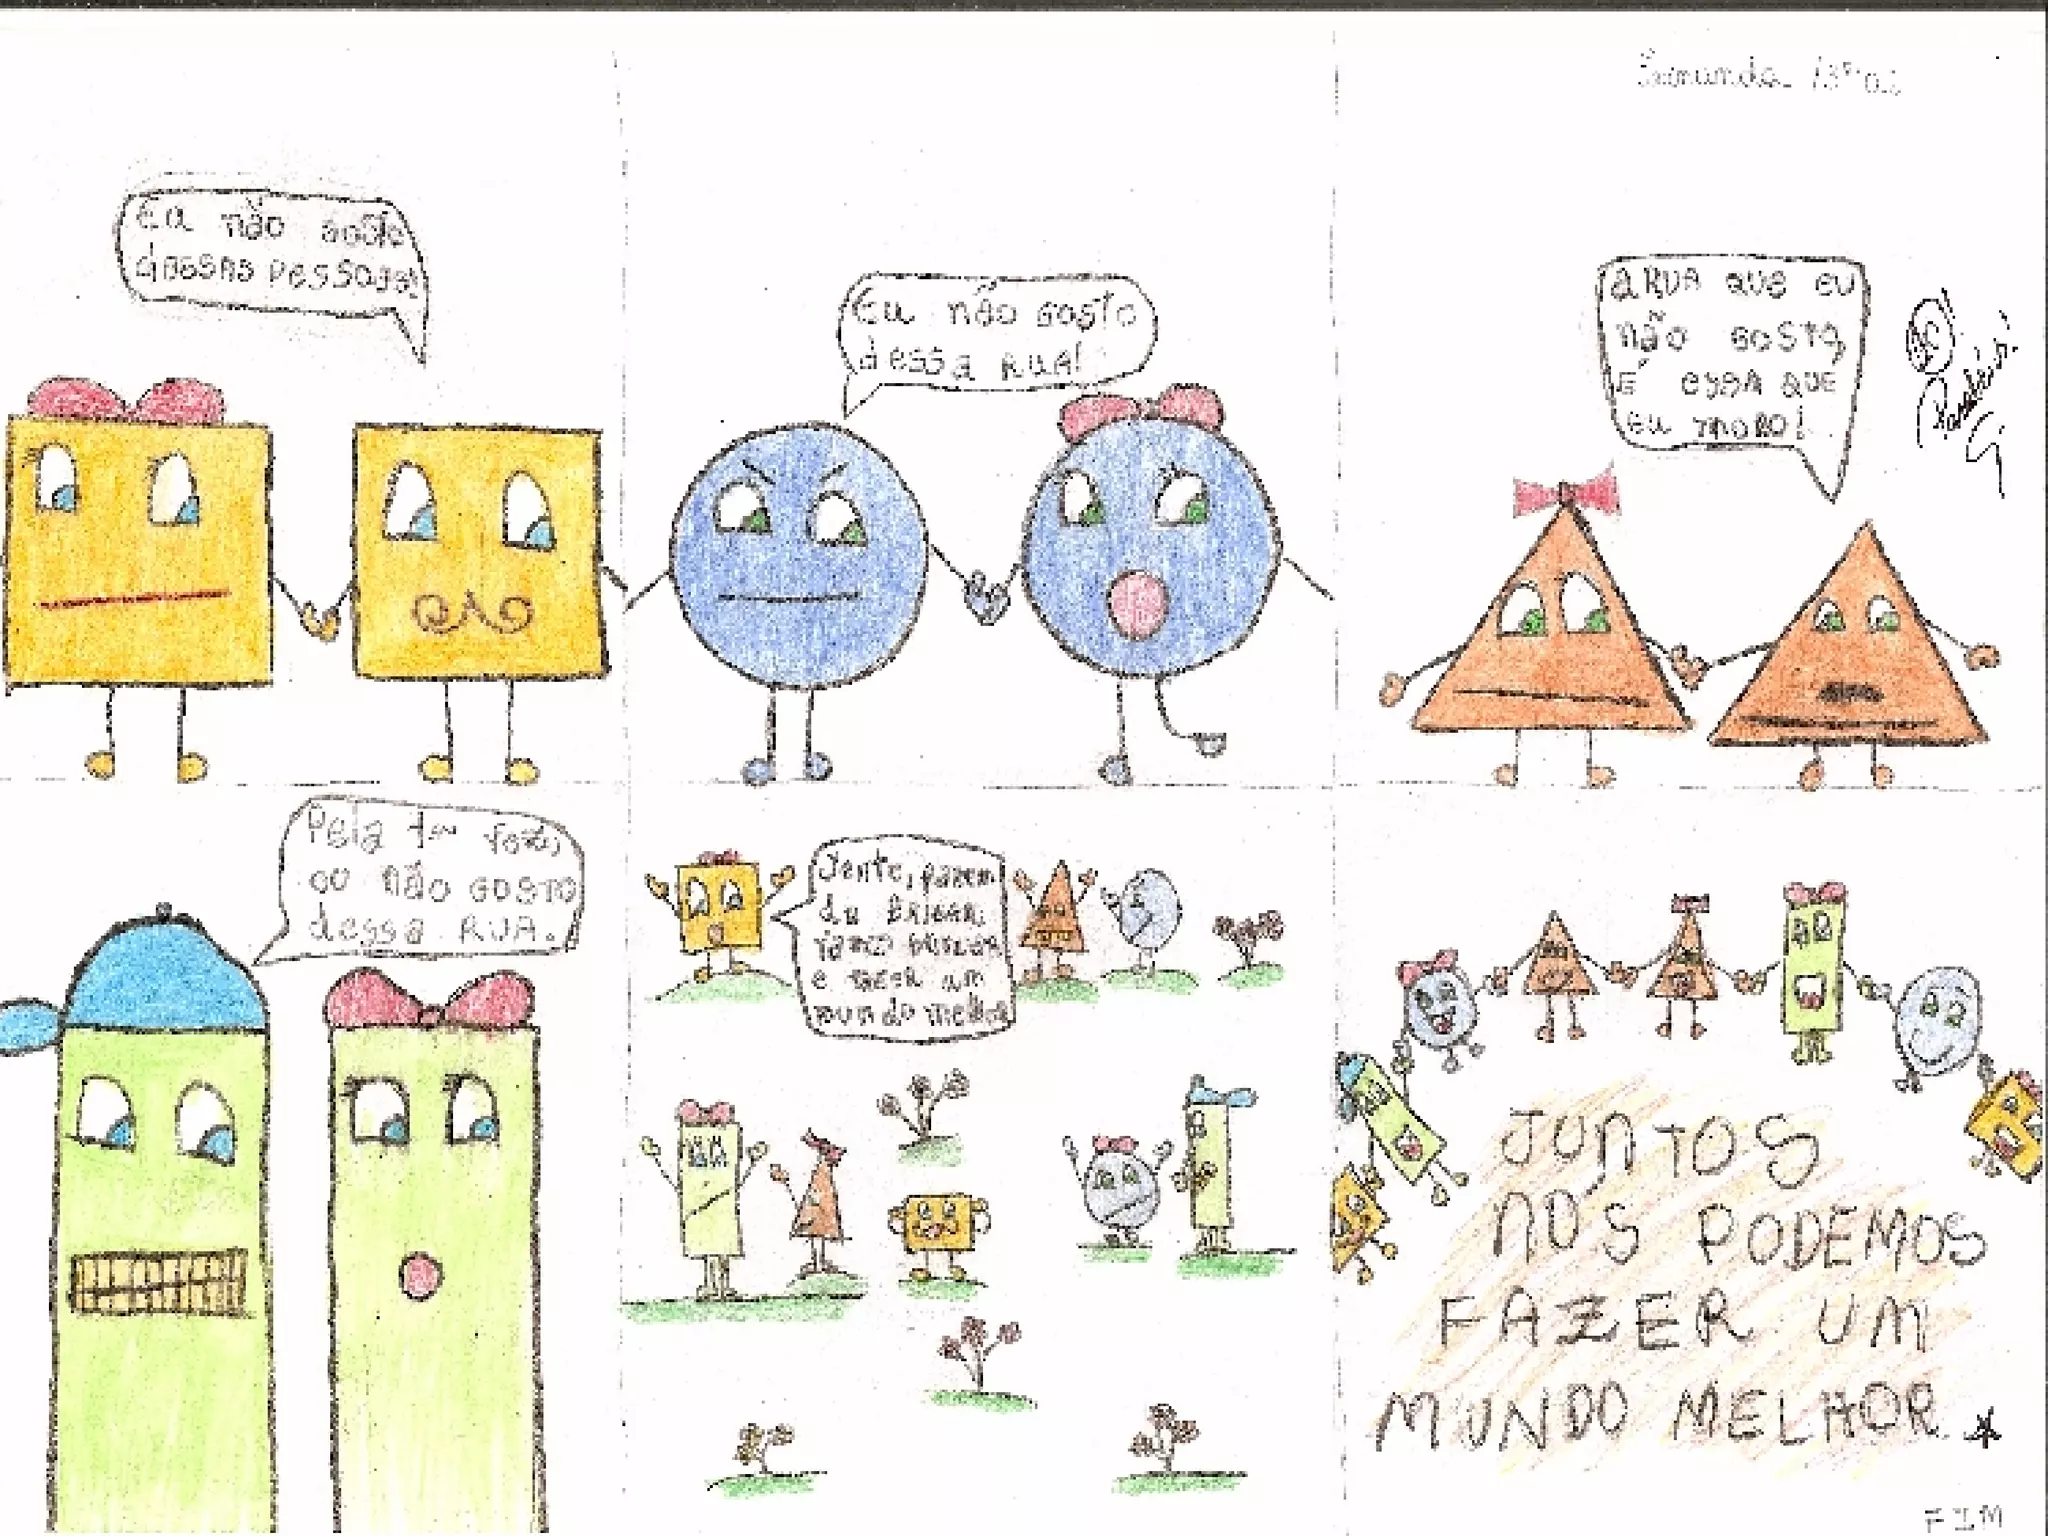 Eu não gosto
dessas pessoas!
Eu não gosto
dessa RUA!
A RUA QUE EU
não GOSTO,
É ESSA QUE
EU MORO!
Parabéns!
Pela
vez,
eu não GOSTO
dessa RUA.
Gente, parem
de BRIGAR.
vamos
e fazer um
mundo melhor
JUNTOS
NOS PODEMOS
FAZER UM
MUNDO MELHOR
FIM